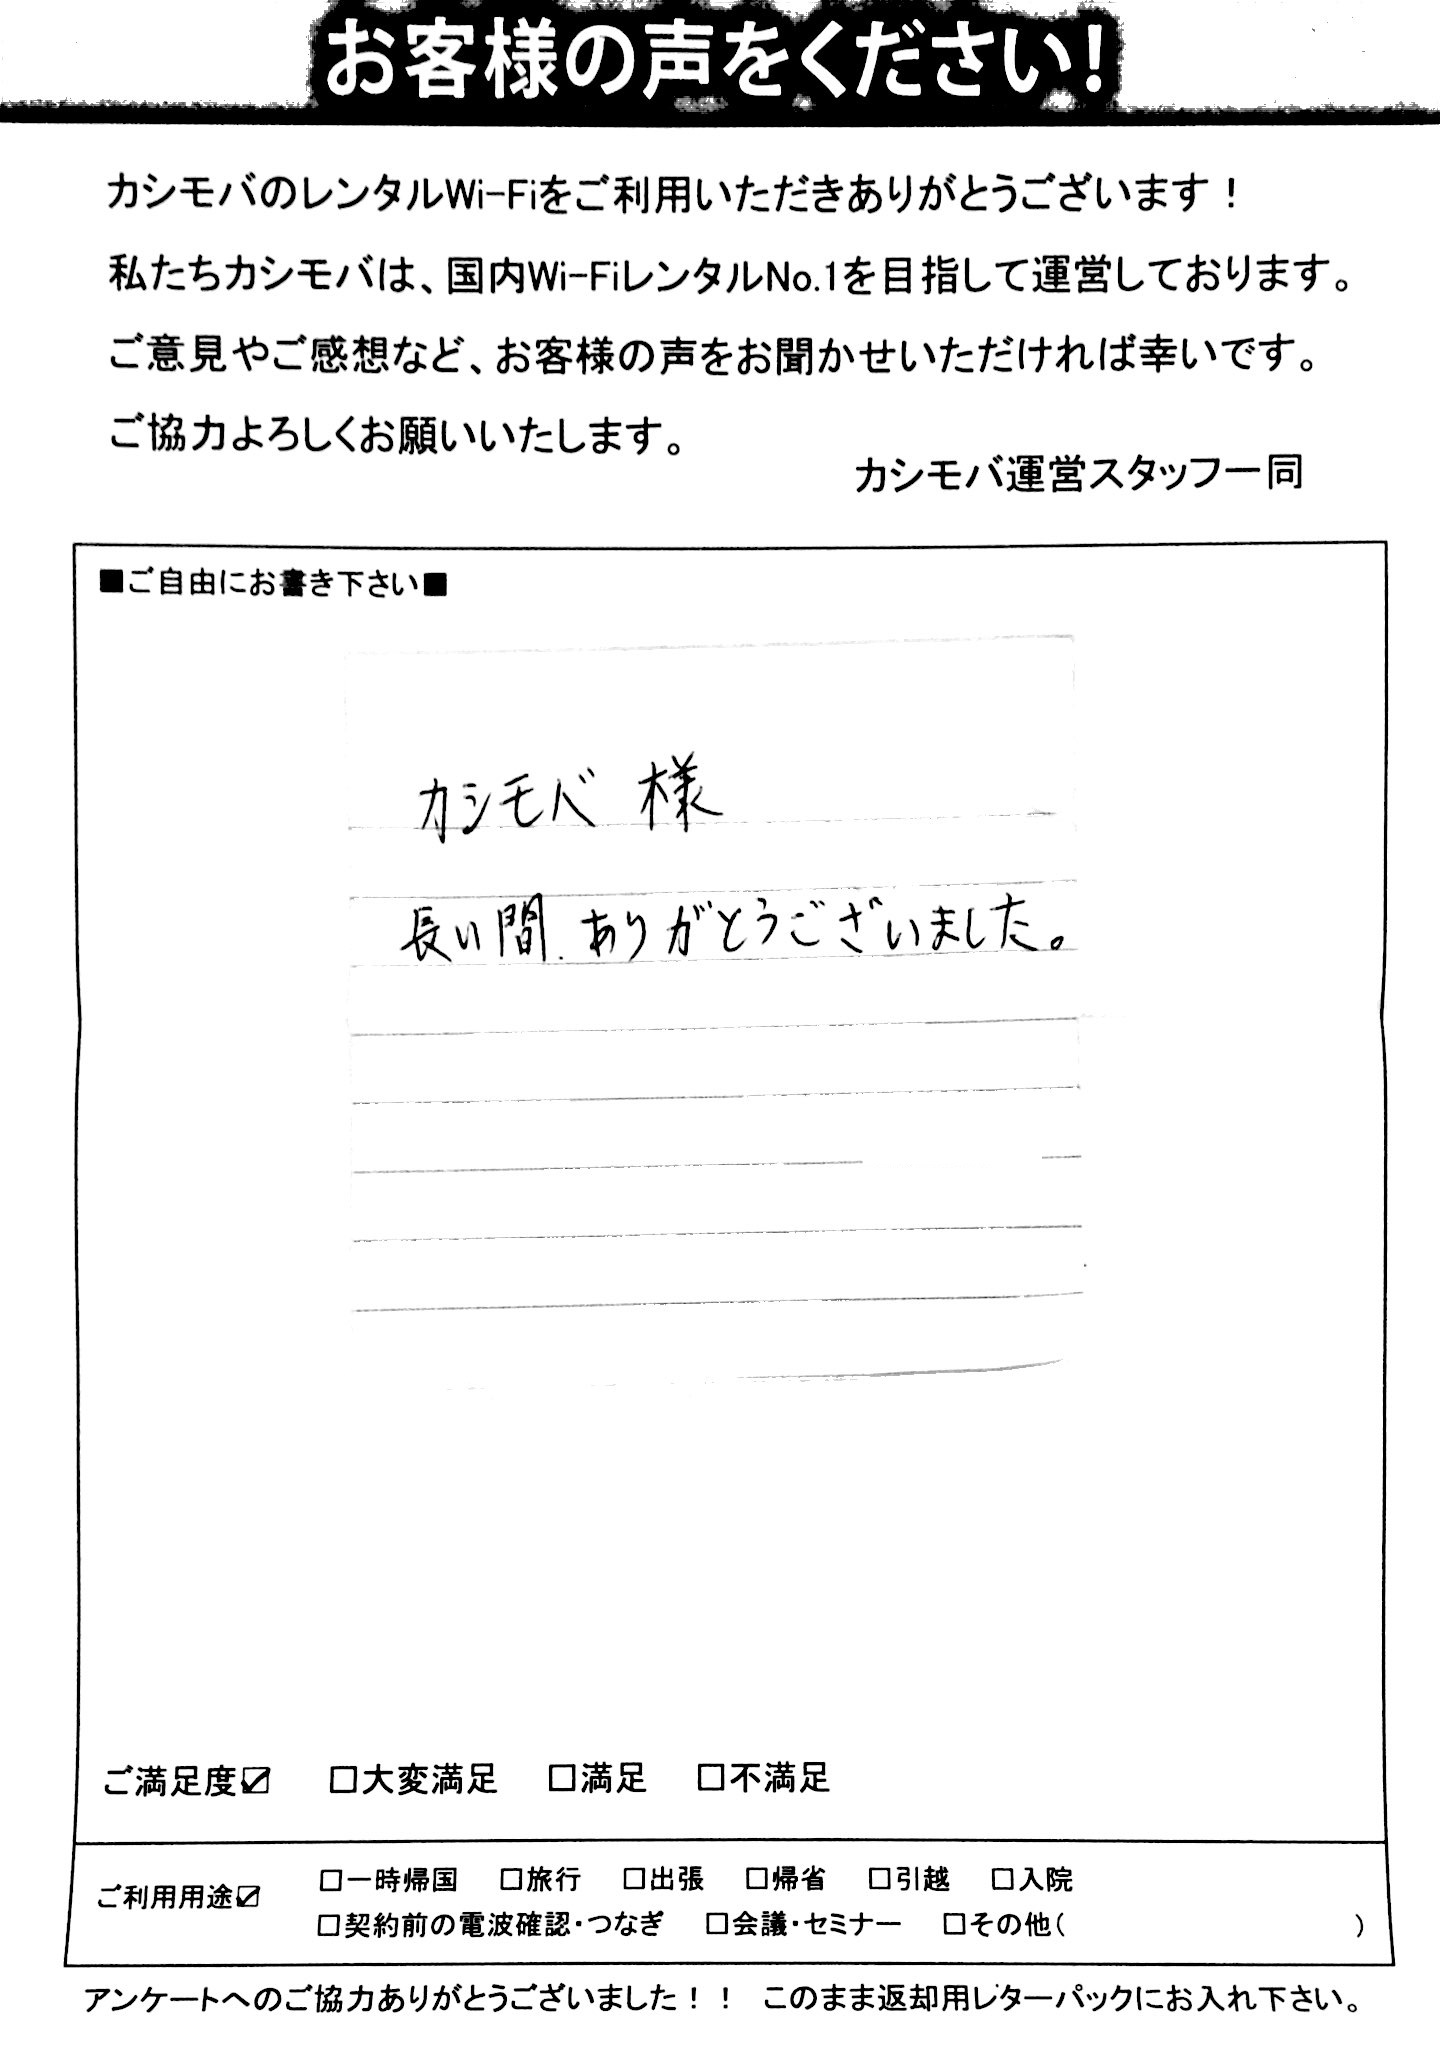 お客様の声をください!
カシモバのレンタルWi-Fiをご利用いただきありがとうございます!
私たちカシモバは、国内Wi-FiレンタルNo.1を目指して運営しております。
ご意見やご感想など、お客様の声をお聞かせいただければ幸いです。
ご協力よろしくお願いいたします。
カシモバ運営スタッフ一同
■ご自由にお書き下さい■
カシモバ 様
長い間、ありがとうございました。
ご満足度☑ □大変満足 □満足 □不満足
ご利用用途☑ □一時帰国 □旅行 □出張 □帰省 □引越 □入院
□契約前の電波確認・つなぎ □会議・セミナー □その他( )
アンケートへのご協力ありがとうございました!! このまま返却用レターパックにお入れ下さい。